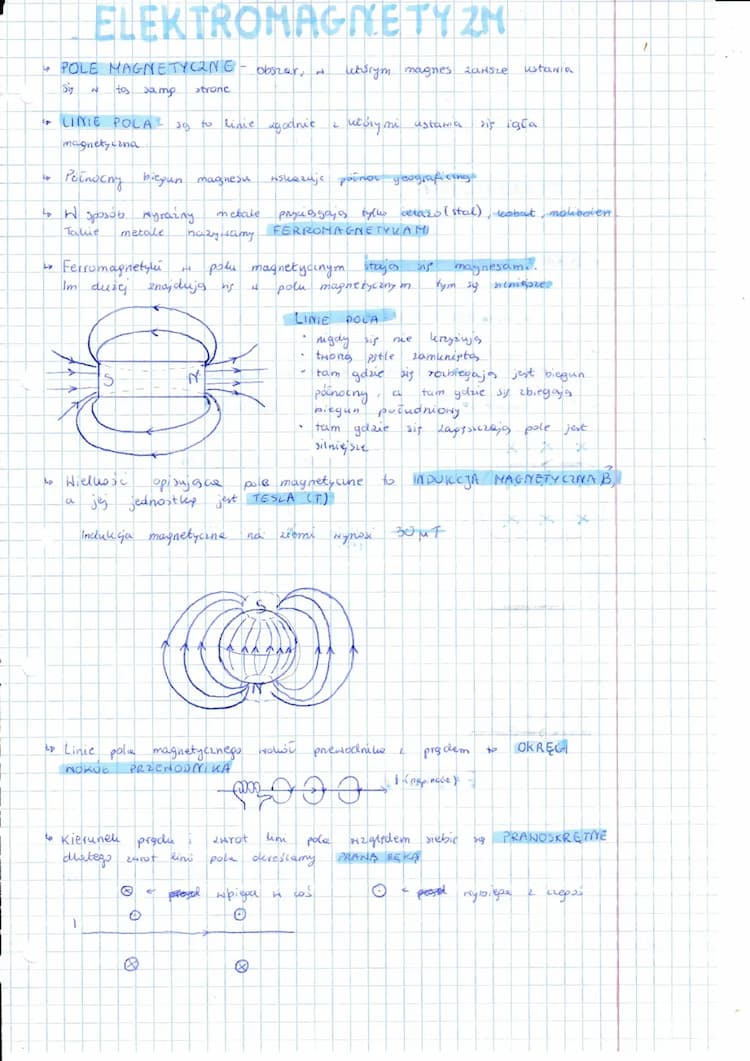 ELEKTROMAGNETYZM
↳ POLE MAGNETYCZNE - obszar, w którym magnes zawsze ustawia
się w tę samą stronę
↳ LINIE POLA - są to linie zgodnie z którymi ustawia się igła
magnetyczna
↳ Północny biegun magnesu wskazuje północ geograficzną
↳ W sposób wyraźny metale przyciągają tylko żelazo (stal), kobalt, molibden
Takie metale nazywamy FERROMAGNETYKAMI
↳ Ferromagnetyki w polu magnetycznym stają się magnesami.
Im dłużej znajdują się w polu magnetycznym tym są silniejsze
LINIE POLA
• nigdy się nie krzyżują
• tworzą pętle zamkniętą
• tam gdzie się rozbiegają jest biegun
północny, a tam gdzie się zbiegają
biegun południowy
• tam gdzie się zagęszczają pole jest
silniejsze
S N
↳ Wielkość opisująca pole magnetyczne to INDUKCJA MAGNETYCZNA B,
a jej jednostką jest TESLA (T)
Indukcja magnetyczna na ziemi wynosi 30 μT
S
N
↳ Linie pola magnetycznego wokół przewodnika z prądem to OKRĘGI
WOKÓŁ PRZEWODNIKA
↳ Kierunek prądu i zwrot linii pola względem siebie są PRAWOSKRĘTNE
dlatego zwrot linii pola określamy PRAWĄ RĘKĄ
⊗ ← wbiega w coś ⊙ ← wybiega z czegoś
⊙ ⊙
I
⊗ ⊗